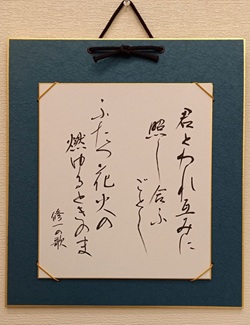 君とわれ互みに
照し合ふ
ごとし
ふたつ花火の
燃ゆるときのま
修一の歌